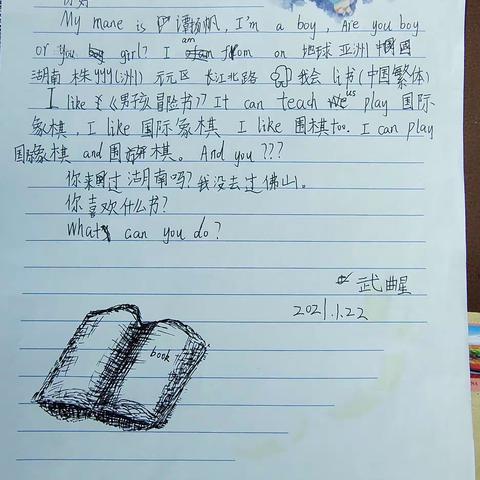 你好
My mane is 谭扬帆, I'm a boy, Are you boy
or you girl? I am from on 地球 亚洲 中国
湖南 株(洲) 元区 长江北路 我会 书(中国繁体)
I like 《男孩冒险书》 It can teach us play 国际
象棋, I like 国际象棋 I like 围棋too. I can play
国际象棋 and 围棋。 And you ???
你来过湖南吗? 我没去过佛山。
你喜欢什么书?
What can you do?
武曲星
2021.1.22
book